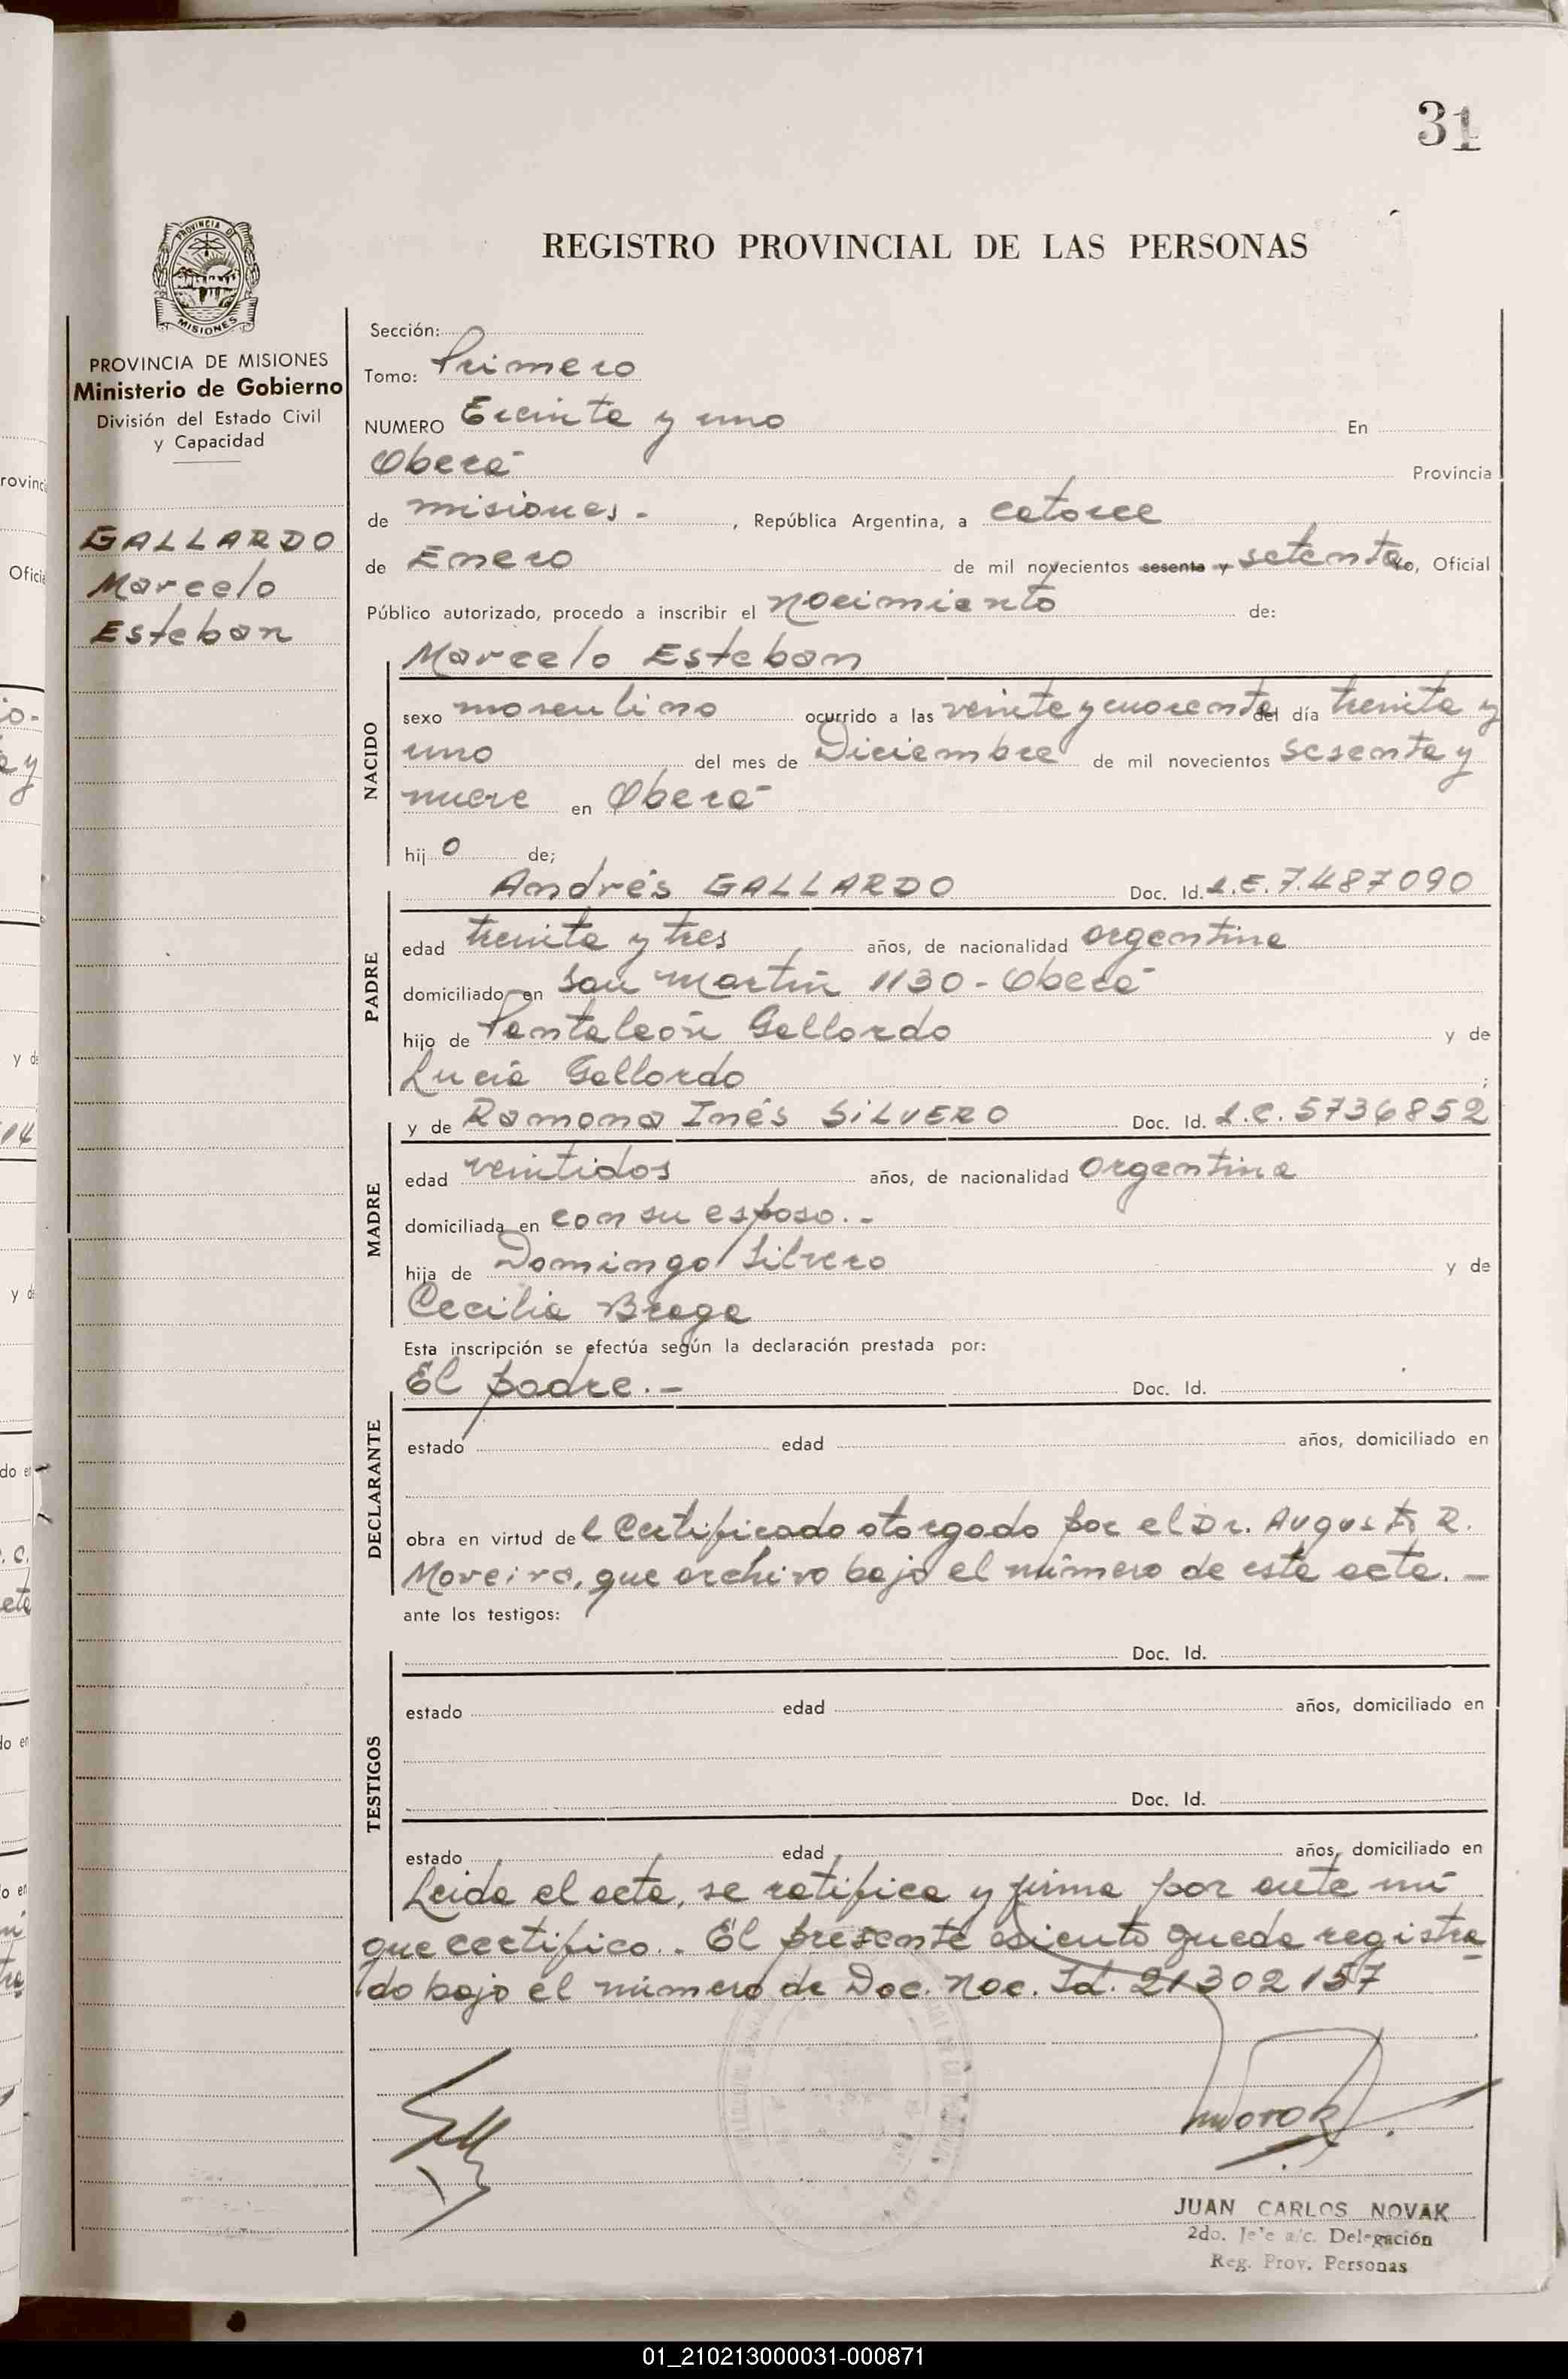 31
PROVINCIA DE
MISIONES
PROVINCIA DE MISIONES
Ministerio de Gobierno
División del Estado Civil
y Capacidad
GALLARDO
Marcelo
Esteban
REGISTRO PROVINCIAL DE LAS PERSONAS
Sección:
Tomo: Primero
NUMERO Treinta y uno En
Oberá Provincia
de misiones.- , República Argentina, a catorce
de Enero de mil novecientos sesenta y setenta yo, Oficial
Público autorizado, procedo a inscribir el nacimiento de:
Marcelo Esteban
NACIDO
sexo masculino ocurrido a las veinte y cuarenta del día treinta y
uno del mes de Diciembre de mil novecientos sesenta y
nueve en Oberá
hij o de;
Andrés GALLARDO Doc. Id. L.E. 7.487090
PADRE
edad treinta y tres años, de nacionalidad argentina
domiciliado en San Martín 1130 - Oberá
hijo de Pantaleón Gallardo y de
Lucía Gallardo ;
y de Ramona Inés SILVERO Doc. Id. L.C. 5736852
MADRE
edad veintidos años, de nacionalidad argentina
domiciliada en con su esposo.-
hija de Domingo Silvero y de
Cecilia Braga
Esta inscripción se efectúa según la declaración prestada por:
El padre.- Doc. Id.
DECLARANTE
estado edad años, domiciliado en
obra en virtud del Certificado otorgado por el Dr. Augusto R.
Moreira, que archivo bajo el número de esta acta.-
ante los testigos:
Doc. Id.
TESTIGOS
estado edad años, domiciliado en
Doc. Id.
estado edad años, domiciliado en
Leida el acta, se ratifica y firma por ante mi
que certifico.. El presente asiento queda registra
do bajo el número de Doc. Nac. Id. 21302157
JUAN CARLOS NOVAK
2do. Jefe a/c. Delegación
Reg. Prov. Personas
01_210213000031-000871